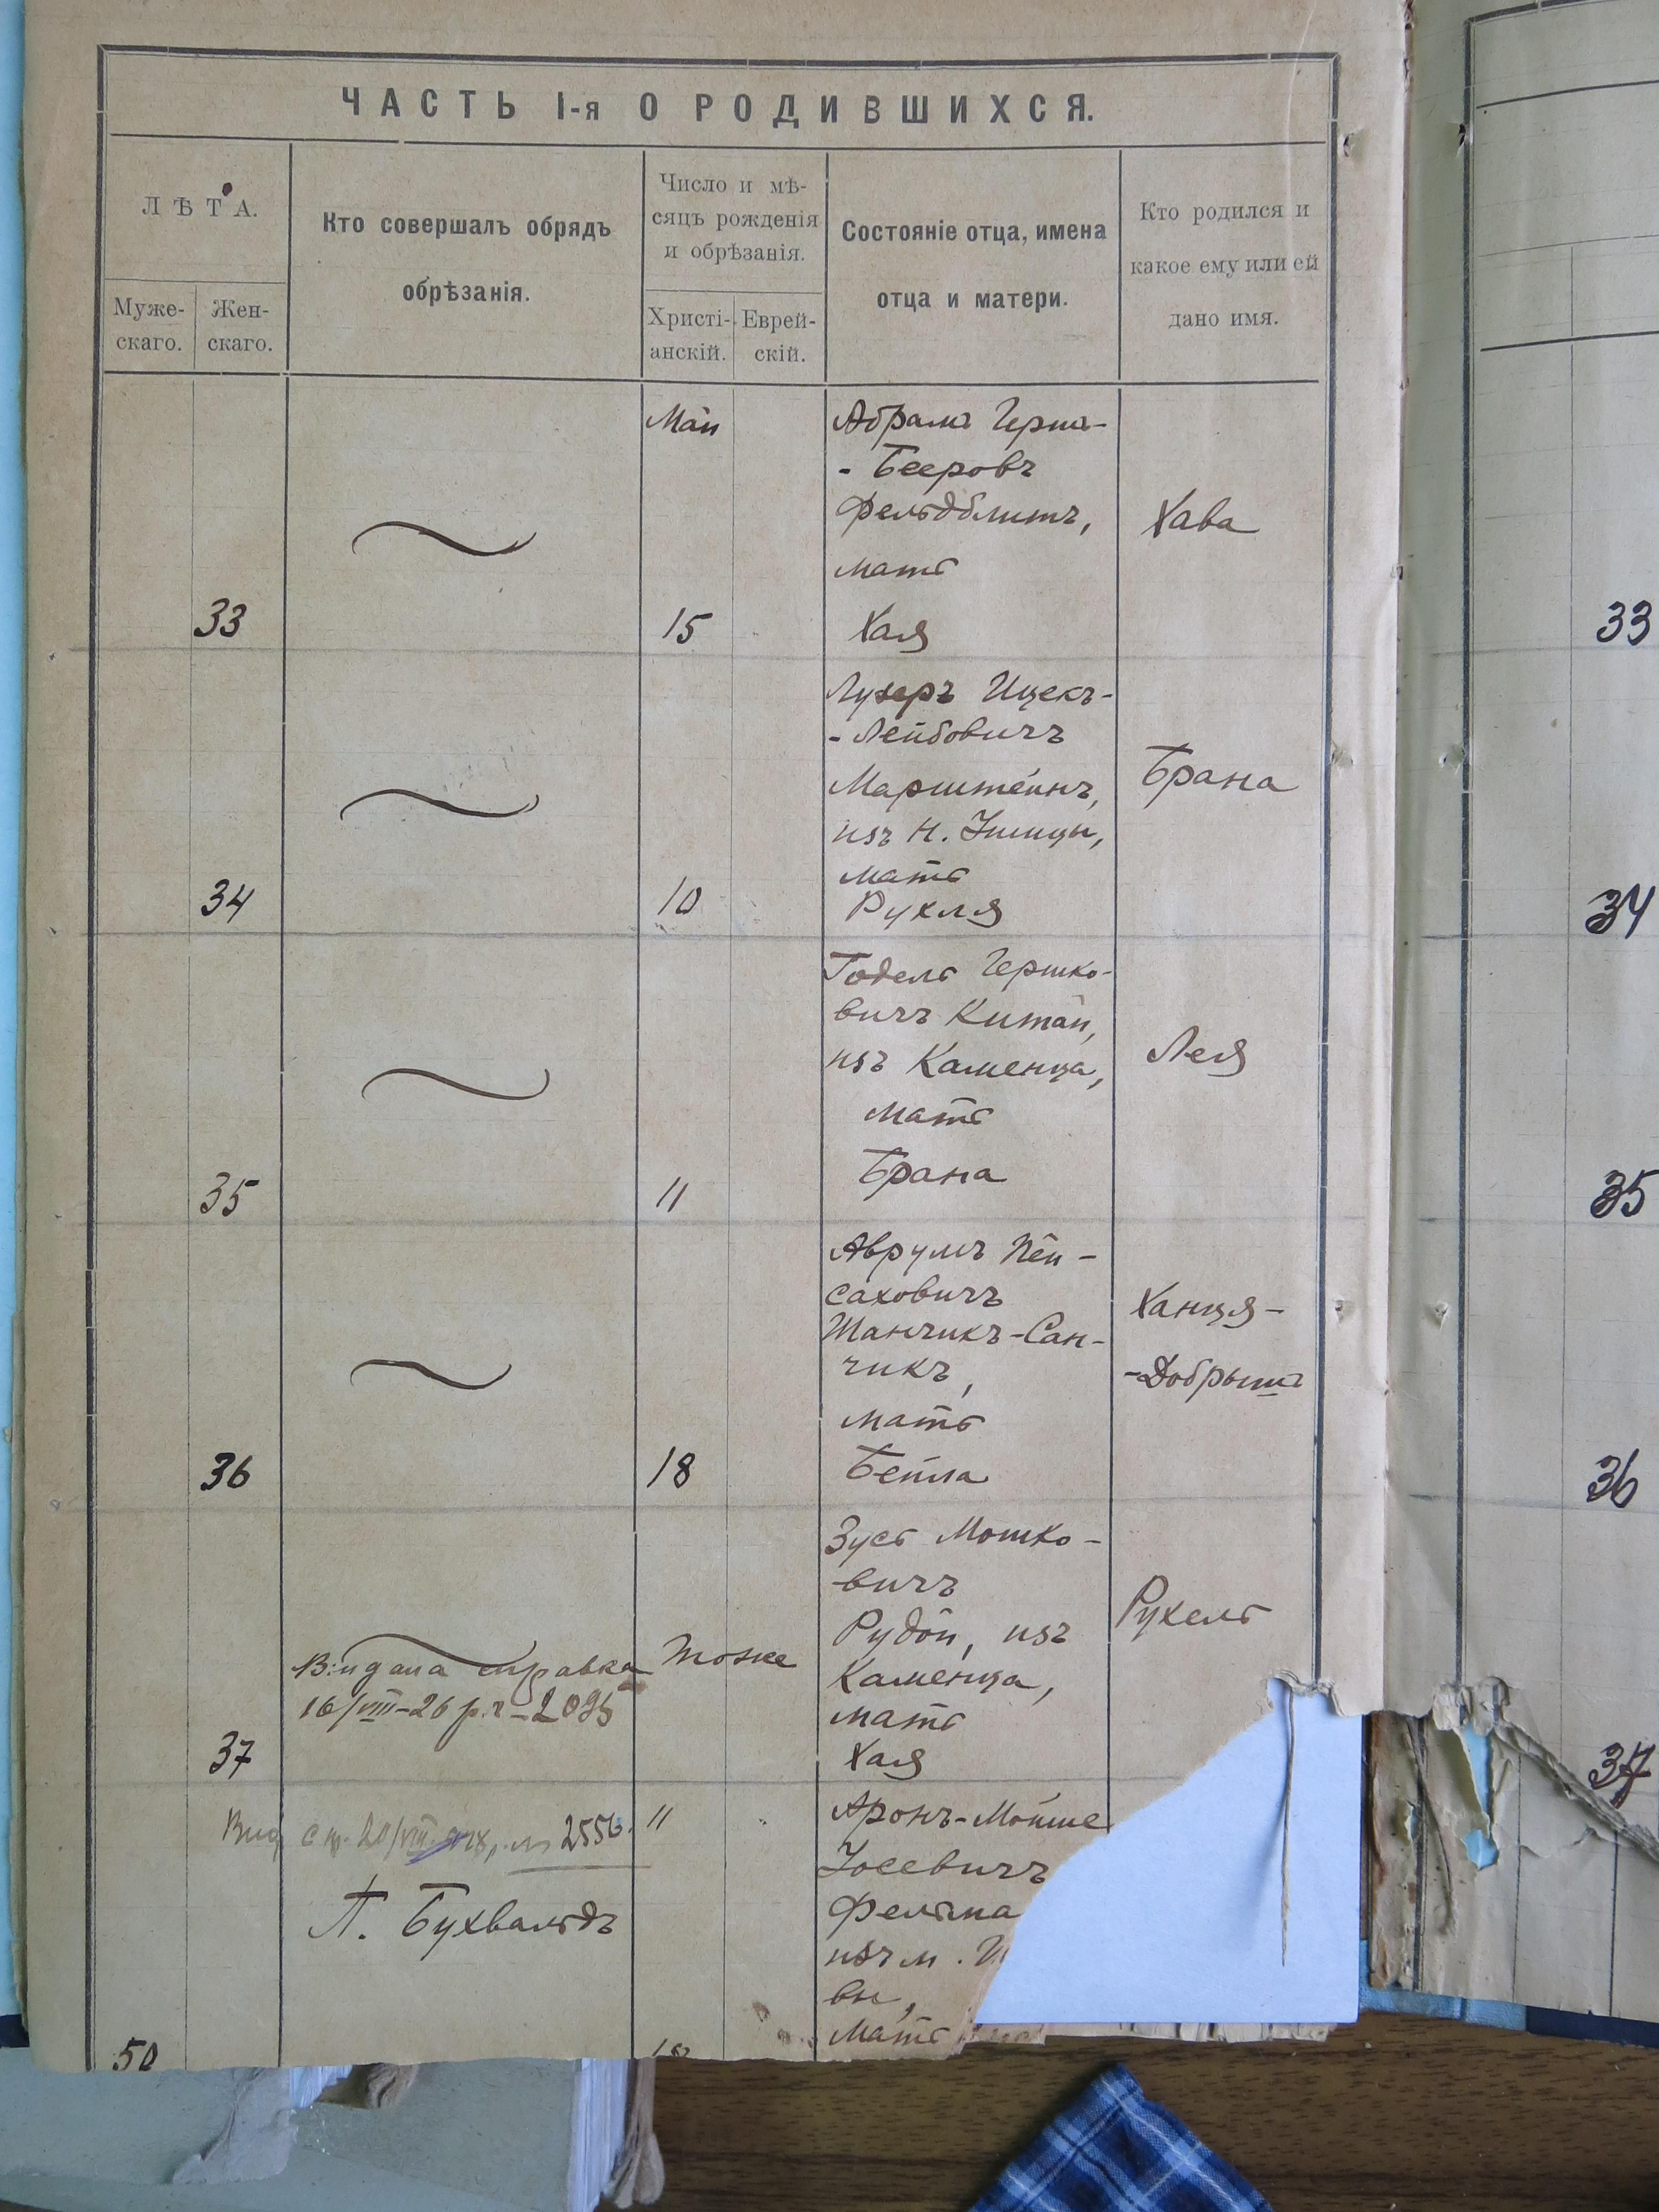 ЧАСТЬ I-я О РОДИВШИХСЯ.
ЛѢТА.
Муже-
скаго.
Жен-
скаго.
Кто совершалъ обрядъ
обрѣзанія.
Число и мѣ-
сяцъ рожденія
и обрѣзанія.
Христі-
анскій.
Еврей-
скій.
Состояніе отца, имена
отца и матери.
Кто родился и
какое ему или ей
дано имя.
33
Май
15
Абрамъ Герш-
-Бееровъ
Фельдблитъ,
мать
Хая
Хава
33
34
10
Лузеръ Ицекъ-
-Лейбовичъ
Марштейнъ,
изъ Н. Ушицы,
мать
Рухля
Брана
34
35
11
Годель Гершко-
вичъ Китай,
изъ Каменца,
мать
Брана
Лея
35
36
18
Аврумъ Пей-
саховичъ
Шанчикъ-Сан-
чикъ,
мать
Бейла
Ханця-
-Добрышъ
36
37
Видана справка
16/VIII-26 р. ч-2095
Тоже
Зусь Мошко-
вичъ
Рудой, изъ
Каменца,
мать
Хая
Рухель
37
Вид с пр. 20/VIII 2556.
П. Бухвальдъ
50
"
18
Аронъ-Мойше
Іосевичъ
Фельпа
изъ м. И
вы,
мать